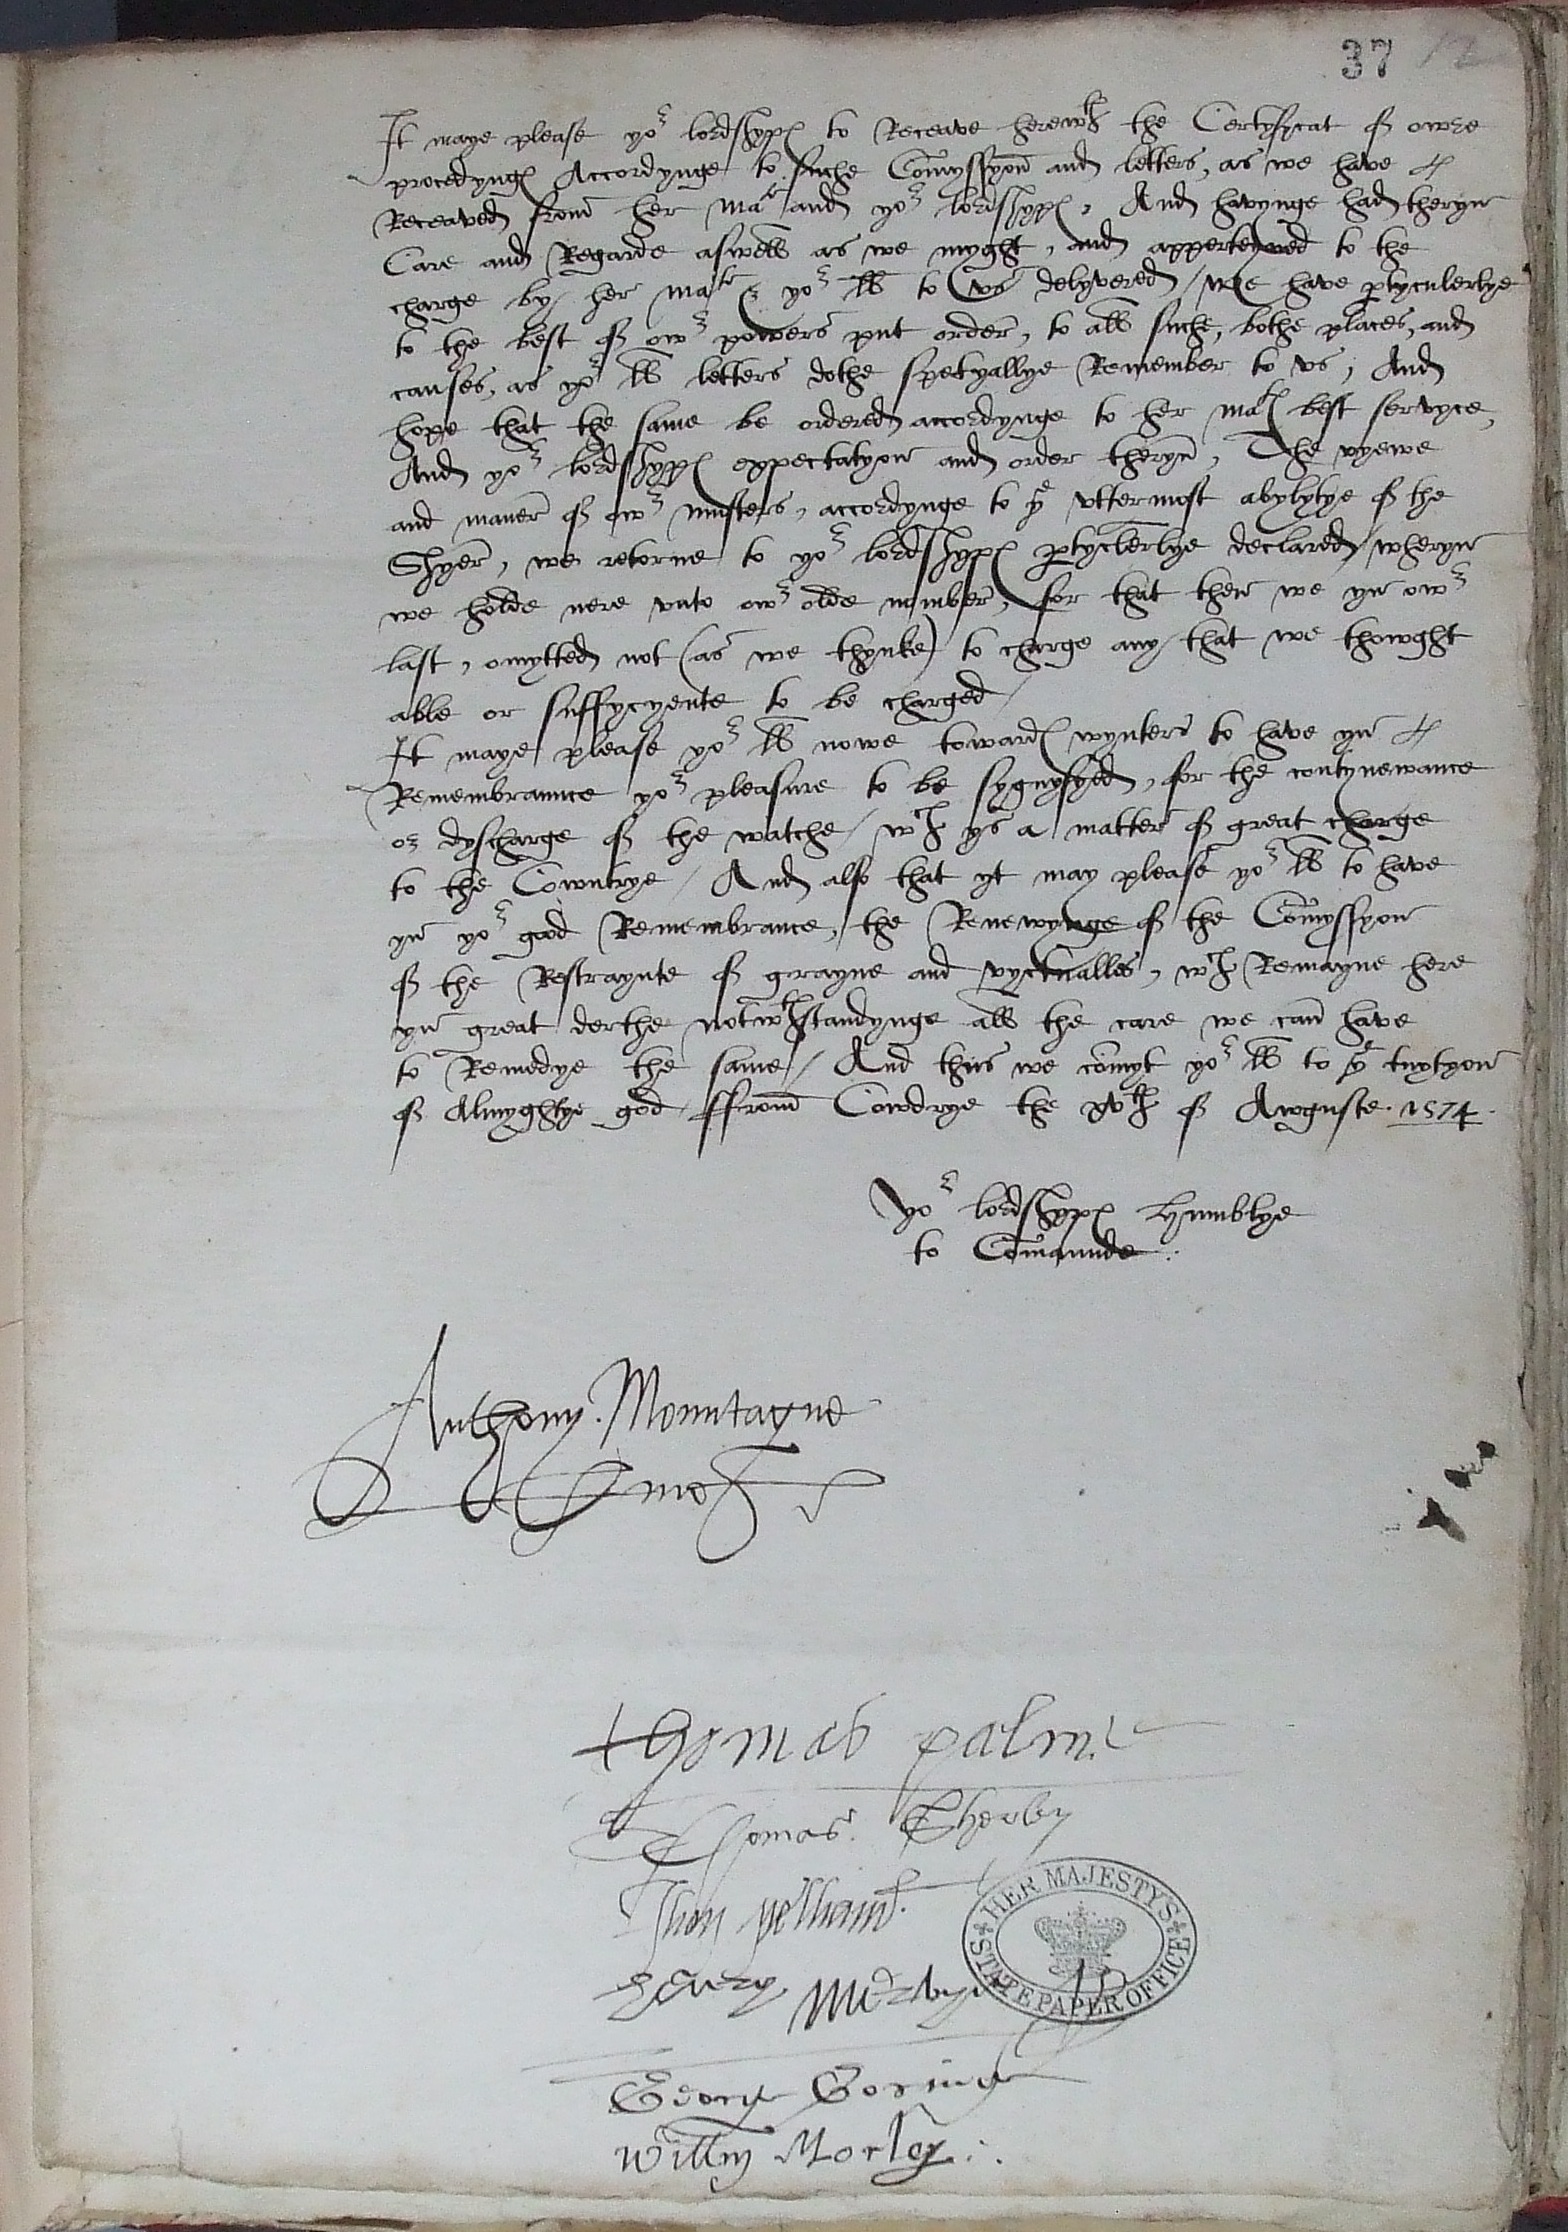 37 12
It maye please yor lordshypes to Receave herewth the Certyfycat of owre
procedynges Accordynge to suche Comyssyon and letters, as we have
Receaved from her Matie and yor lordshypes, And havynge had theryn
Care and Regarde aswell as we myght, and apperteyned to the
charge by her Matie & yor LL to vs delyvered / we have ptyculerlye
to the best of owr powers put order, to all suche, bothe places, and
causes, as yor LL letters dothe specyallye Remember to vs, And
hope that the same be ordered accordynge to her Maties best servyce,
And yor lordshyppes expectatyon and order theryn, The vyewe
and maner of owr musters, accordynge to ye vttermost abylytye of the
Shyer, we retorne to yor lordshypes ptyclerlye declared / wheryn
we holde nere vnto owr olde number, for that then we yn owr
last, omytted not (as we thynke) to charge any that we thowght
able or suffycyente to be charged /
It maye please yor LL nowe towardes wynter to have yn
Remembraunce yor pleasure to be sygnyfyed, for the contynewance
or dyscharge of the watche / wch ys a matter of great charge
to the Cowntrye / And also that yt may please yor LL to have
yn yor good Remembrance, the Renewynge of the Comyssyon
of the Restraynte of grayne and vyctualles, wch Remayne here
yn great derthe notwthstandynge all the care we can have
to Remedye the same / And thus we comyt yor LL to ye tuytyon
of Almyghtye god / ffrom Cowdrye the xvth of Awguste. 1574.
Yor lordshypes humblye
to Comaunde:
Anthony. Mountague
thomas palmer
Thomas Sherley
Jhon pelham.
Henry Mervyn
HER MAJESTY'S STATE PAPER OFFICE
George Goring
Willm Morley.